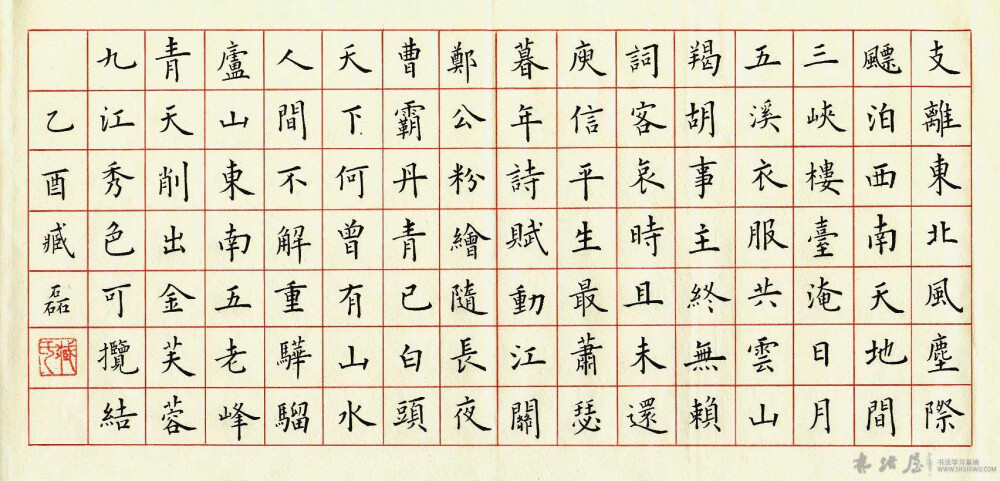 支離東北風塵際
飃泊西南天地間
三峽樓臺淹日月
五溪衣服共雲山
羯胡事主終無賴
詞客哀時且未還
庾信平生最蕭瑟
暮年詩賦動江關
鄭公粉繪隨長夜
曹霸丹青已白頭
天下何曾有山水
人間不解重驊騮
廬山東南五老峰
青天削出金芙蓉
九江秀色可攬結
乙酉臧磊
书法屋
书法学习基地
WWW.SHUFAWU.COM